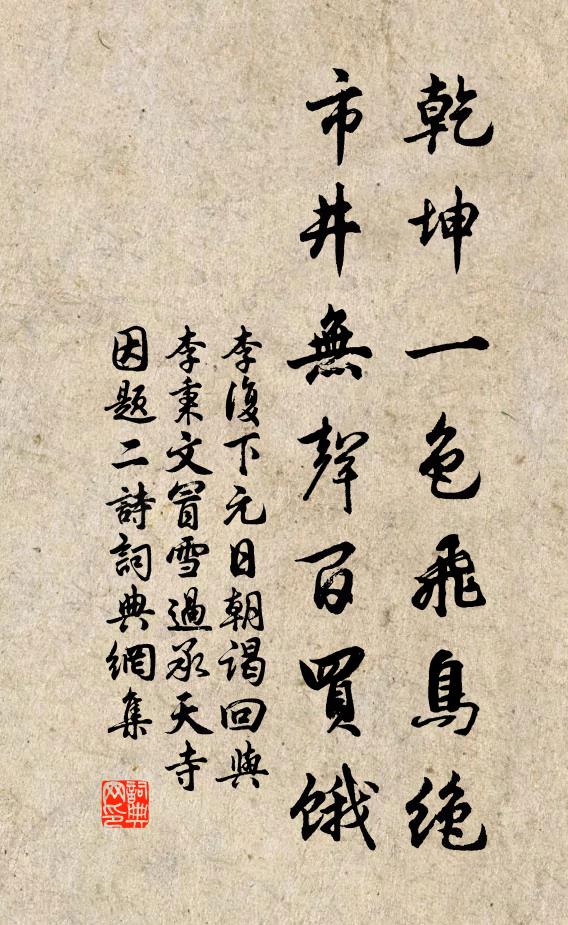 乾坤一色飛鳥絶
市井無聲百買餓
李復下元日朝謁回與
李秉文冒雪過承天寺
因題二詩詞典網集
詞典網印